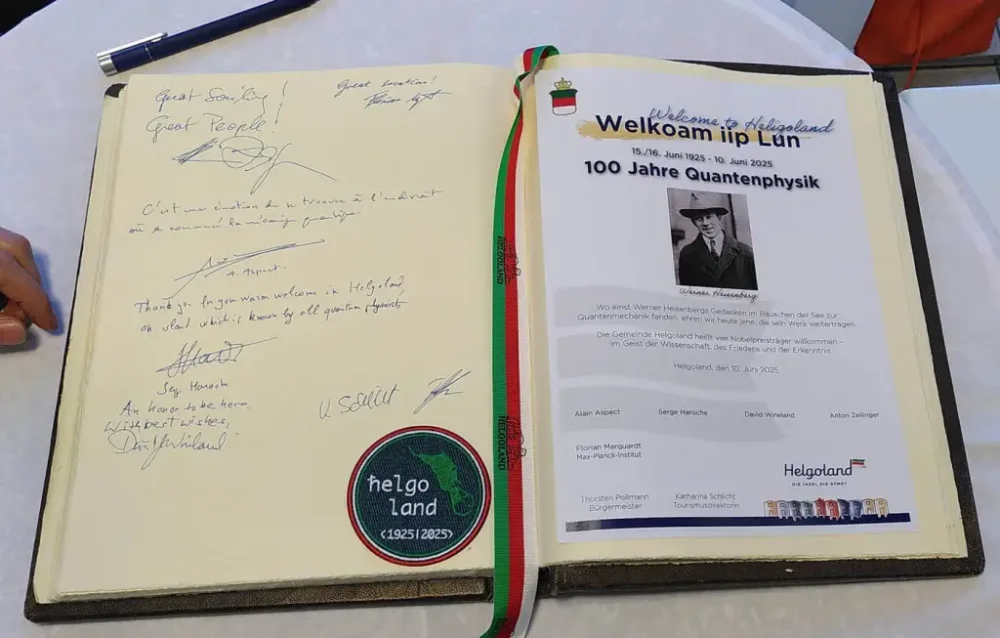 Great Sailing!
Great People!
Great location!
C'est une émotion de se trouver à l'endroit
où
A. Aspect.
Thank you for your warm welcome in Helgoland,
an island which is known by all quantum physicists
Serge Haroche
An honor to be here,
With best wishes,
David J Wineland
K Schlicht
ħelgo
land
⟨1925|2025⟩
HELGOLAND
HELGOLAND
Welcome to Heligoland
Welkoam iip Lun
15./16. Juni 1925 - 10. Juni 2025
100 Jahre Quantenphysik
Werner Heisenberg
Wo einst Werner Heisenbergs Gedanken im Rauschen der See zur
Quantenmechanik fanden, ehren wir heute jene, die sein Werk weitertragen.
Die Gemeinde Helgoland heißt vier Nobelpreisträger willkommen –
im Geist der Wissenschaft, des Friedens und der Erkenntnis.
Helgoland, den 10. Juni 2025
Alain Aspect Serge Haroche David Wineland Anton Zeilinger
Florian Marquardt
Max-Planck-Institut
Helgoland
DIE INSEL DIE ATMET
Thorsten Pollmann Katharina Schlicht
Bürgermeister Tourismusdirektorin